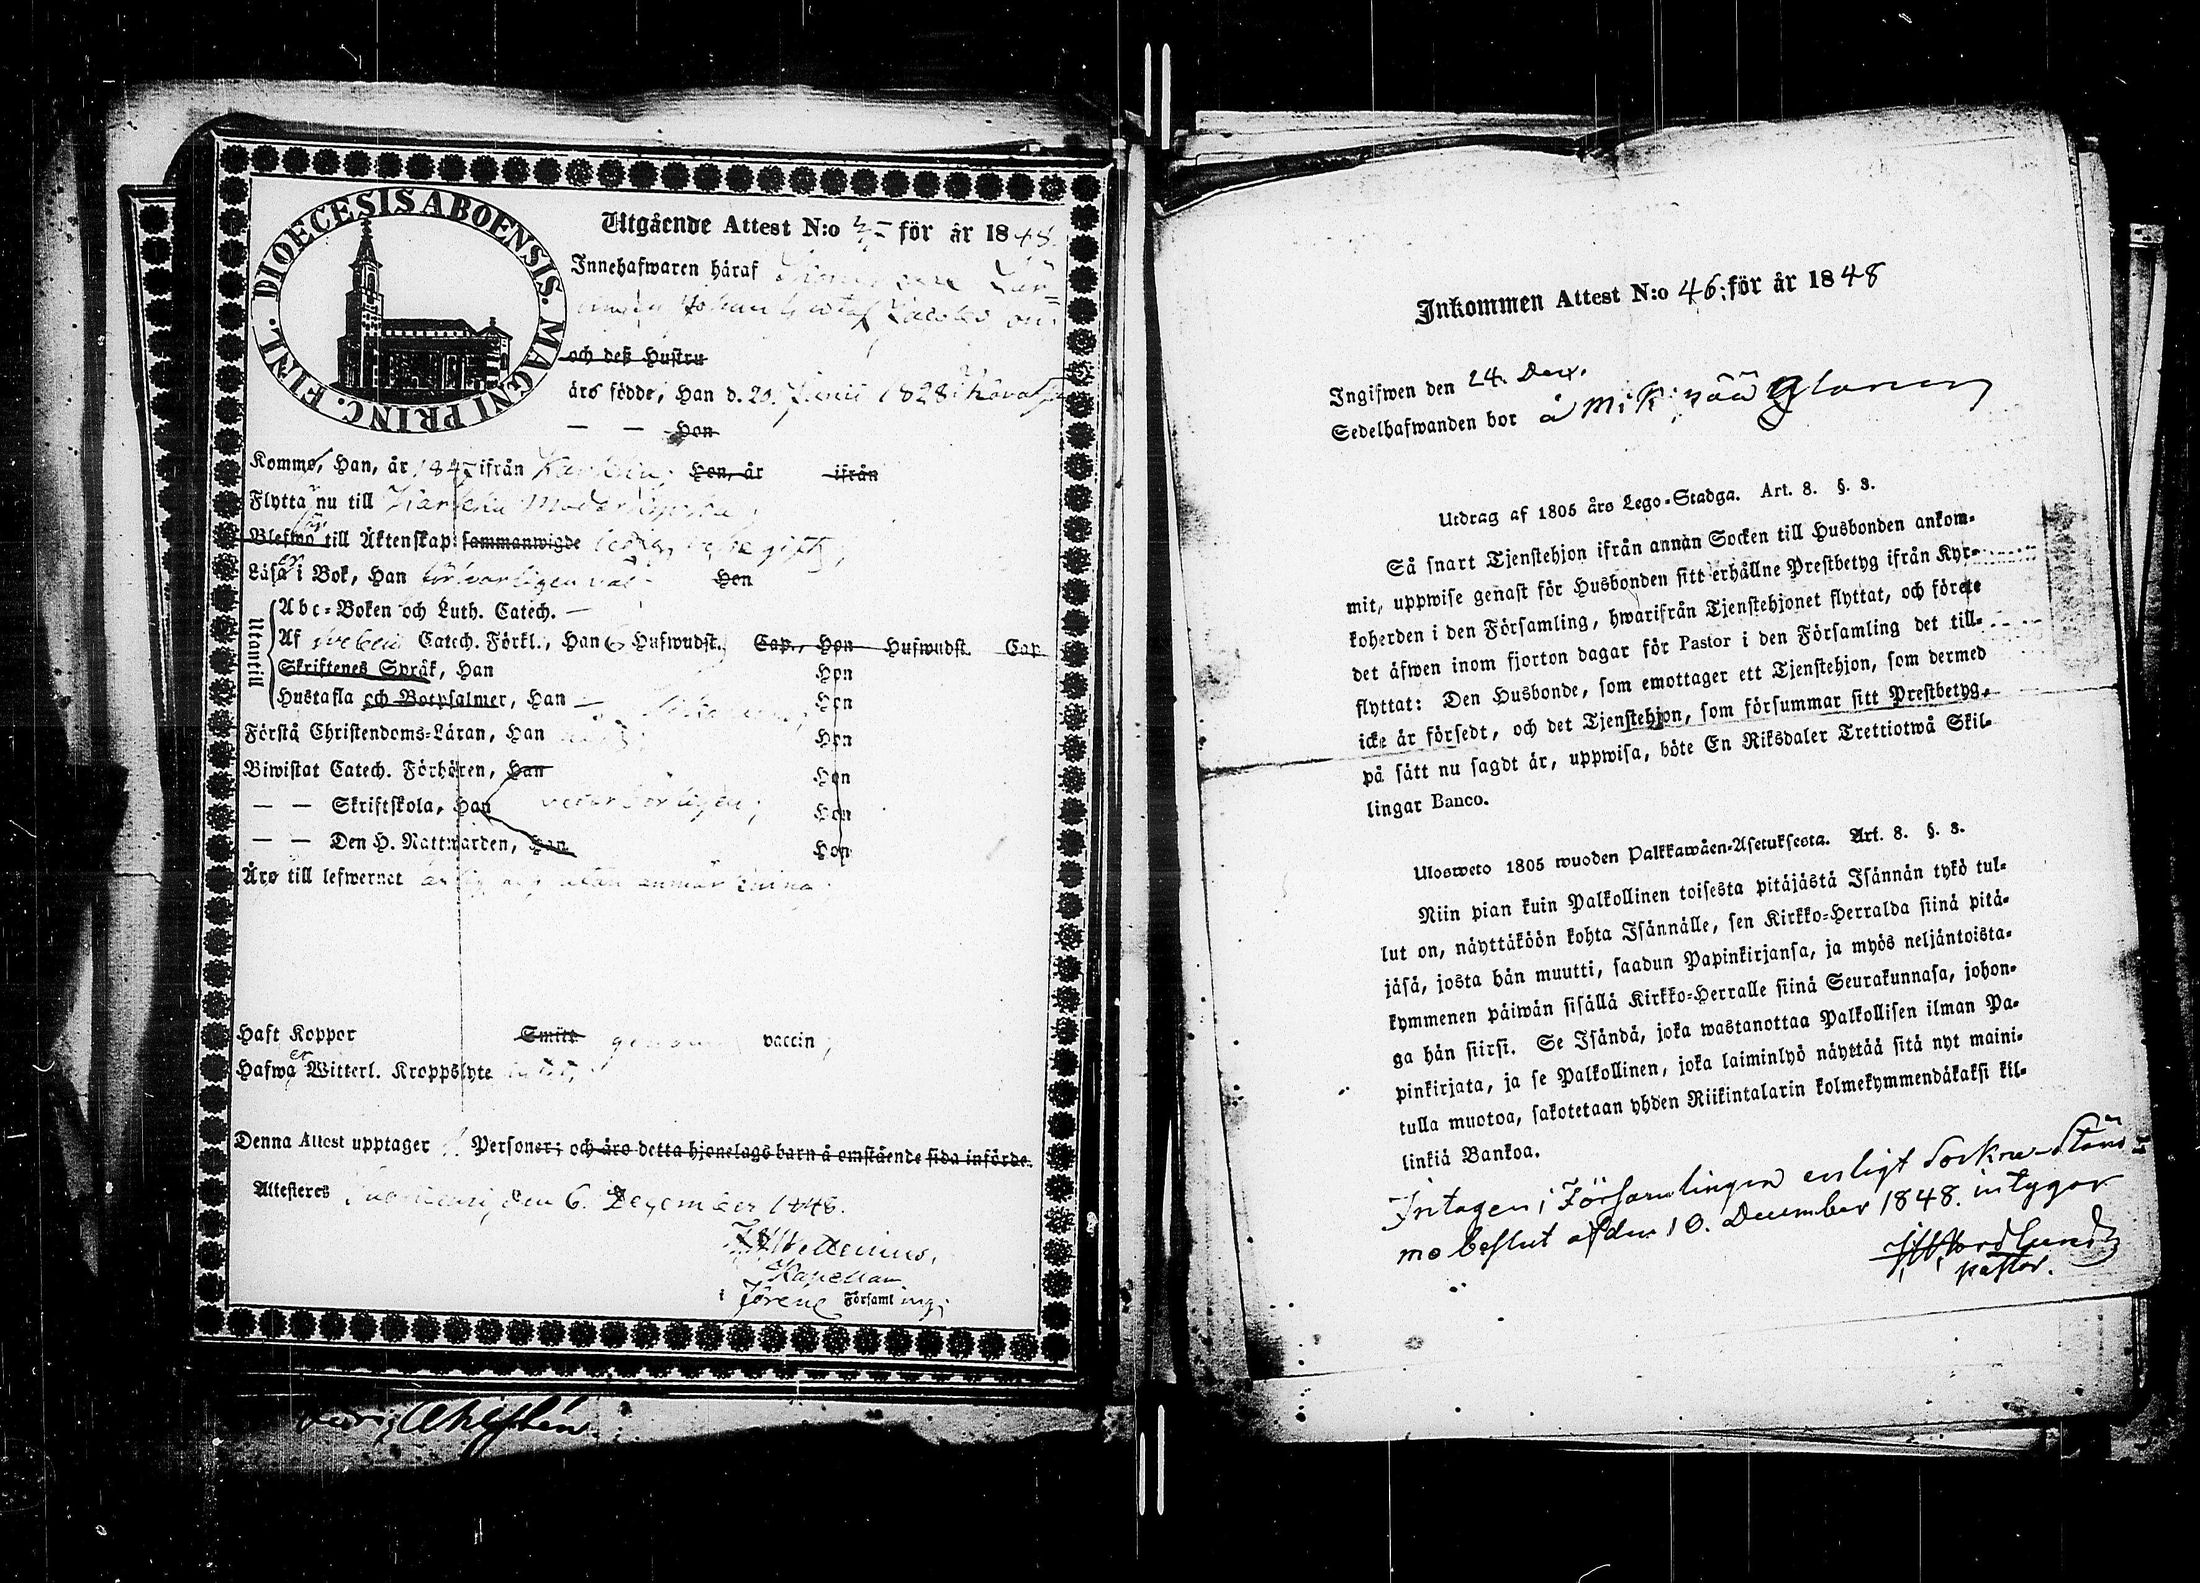 DIOECESIS ABOENSIS. MAGNI PRINC. FINL.
Utgående Attest N:o för år 1848.
Innehafwaren häraf
Johan Gustaf
och deß Hustru
års födde, Han d. 20. Junii 1828
— — Hon
Komme, Han, år 1847 ifrån Karkku, Hon, år ifrån
Flytta nu till Karkku Moderkyrka,
Blefwo till Äktenskap sammanwigde ledig
Läsa i Bok, Han försvarligen väl Hon
Utantill
Abc-Boken och Luth. Catech. —
Af Svebelii Catech. Förkl., Han 6 Hufwudst., Cap., Hon Hufwudst. Cap
Skriftenes Språk, Han Hon
Hustafla och Botpsalmer, Han — Hon
Förstå Christendoms-Läran, Han Hon
Biwistat Catech. Förhören, Han Hon
— — Skriftskola, Han vederbörligen; Hon
— — Den H. Nattwarden, Han Hon
Äro till lefwernet ärlig och utan anmärkning.
Haft Koppor Smitt genom vaccin;
Hafwa Witterl. Kroppslyte intet;
Denna Attest upptager 1. Personer; och äro detta hjonelags barn å omstående sida införde.
Attesteres Suoniemi, den 6. December 1848.
Wettenius,
Kapellan
i förene Församling;
Ahlstén
Inkommen Attest N:o 46. för år 1848
Ingifwen den 24. Dec.
Sedelhafwanden bor å
Utdrag af 1805 års Lego-Stadga. Art. 8. §. 3.
Så snart Tjenstehjon ifrån annan Socken till Husbonden ankom-
mit, uppwise genast för Husbonden sitt erhållne Prestbetyg ifrån Kyr-
koherden i den Församling, hwarifrån Tjenstehjonet flyttat, och förete
det äfwen inom fjorton dagar för Pastor i den Församling det till-
flyttat: Den Husbonde, som emottager ett Tjenstehjon, som dermed
icke är försedt, och det Tjenstehjon, som försummar sitt Prestbetyg,
på sätt nu sagdt är, uppwisa, böte En Riksdaler Trettiotwå Skil-
lingar Banco.
Ulosweto 1805 wuoden Palkkawäen-Asetuksesta. Art. 8. §. 3.
Niin pian kuin Palkollinen toisesta pitäjästä Isännän tykö tul-
lut on, näyttäköön kohta Isännälle, sen Kirkko-Herralda siinä pitä-
jäsä, josta hän muutti, saadun Papinkirjansa, ja myös neljäntoista-
kymmenen päiwän sisällä Kirkko-Herralle siinä Seurakunnasa, johon-
ga hän siirsi. Se Isändä, joka wastanottaa Palkollisen ilman Pa-
pinkirjata, ja se Palkollinen, joka laiminlyö näyttää sitä nyt maini-
tulla muotoa, sakotetaan yhden Riikintalarin kolmekymmendäkaksi kil-
linkiä Bankoa.
Intagen i Församlingen enligt Sockne-Stäm-
mo beslut af den 10. December 1848. intygar
Nordlund
pastor.